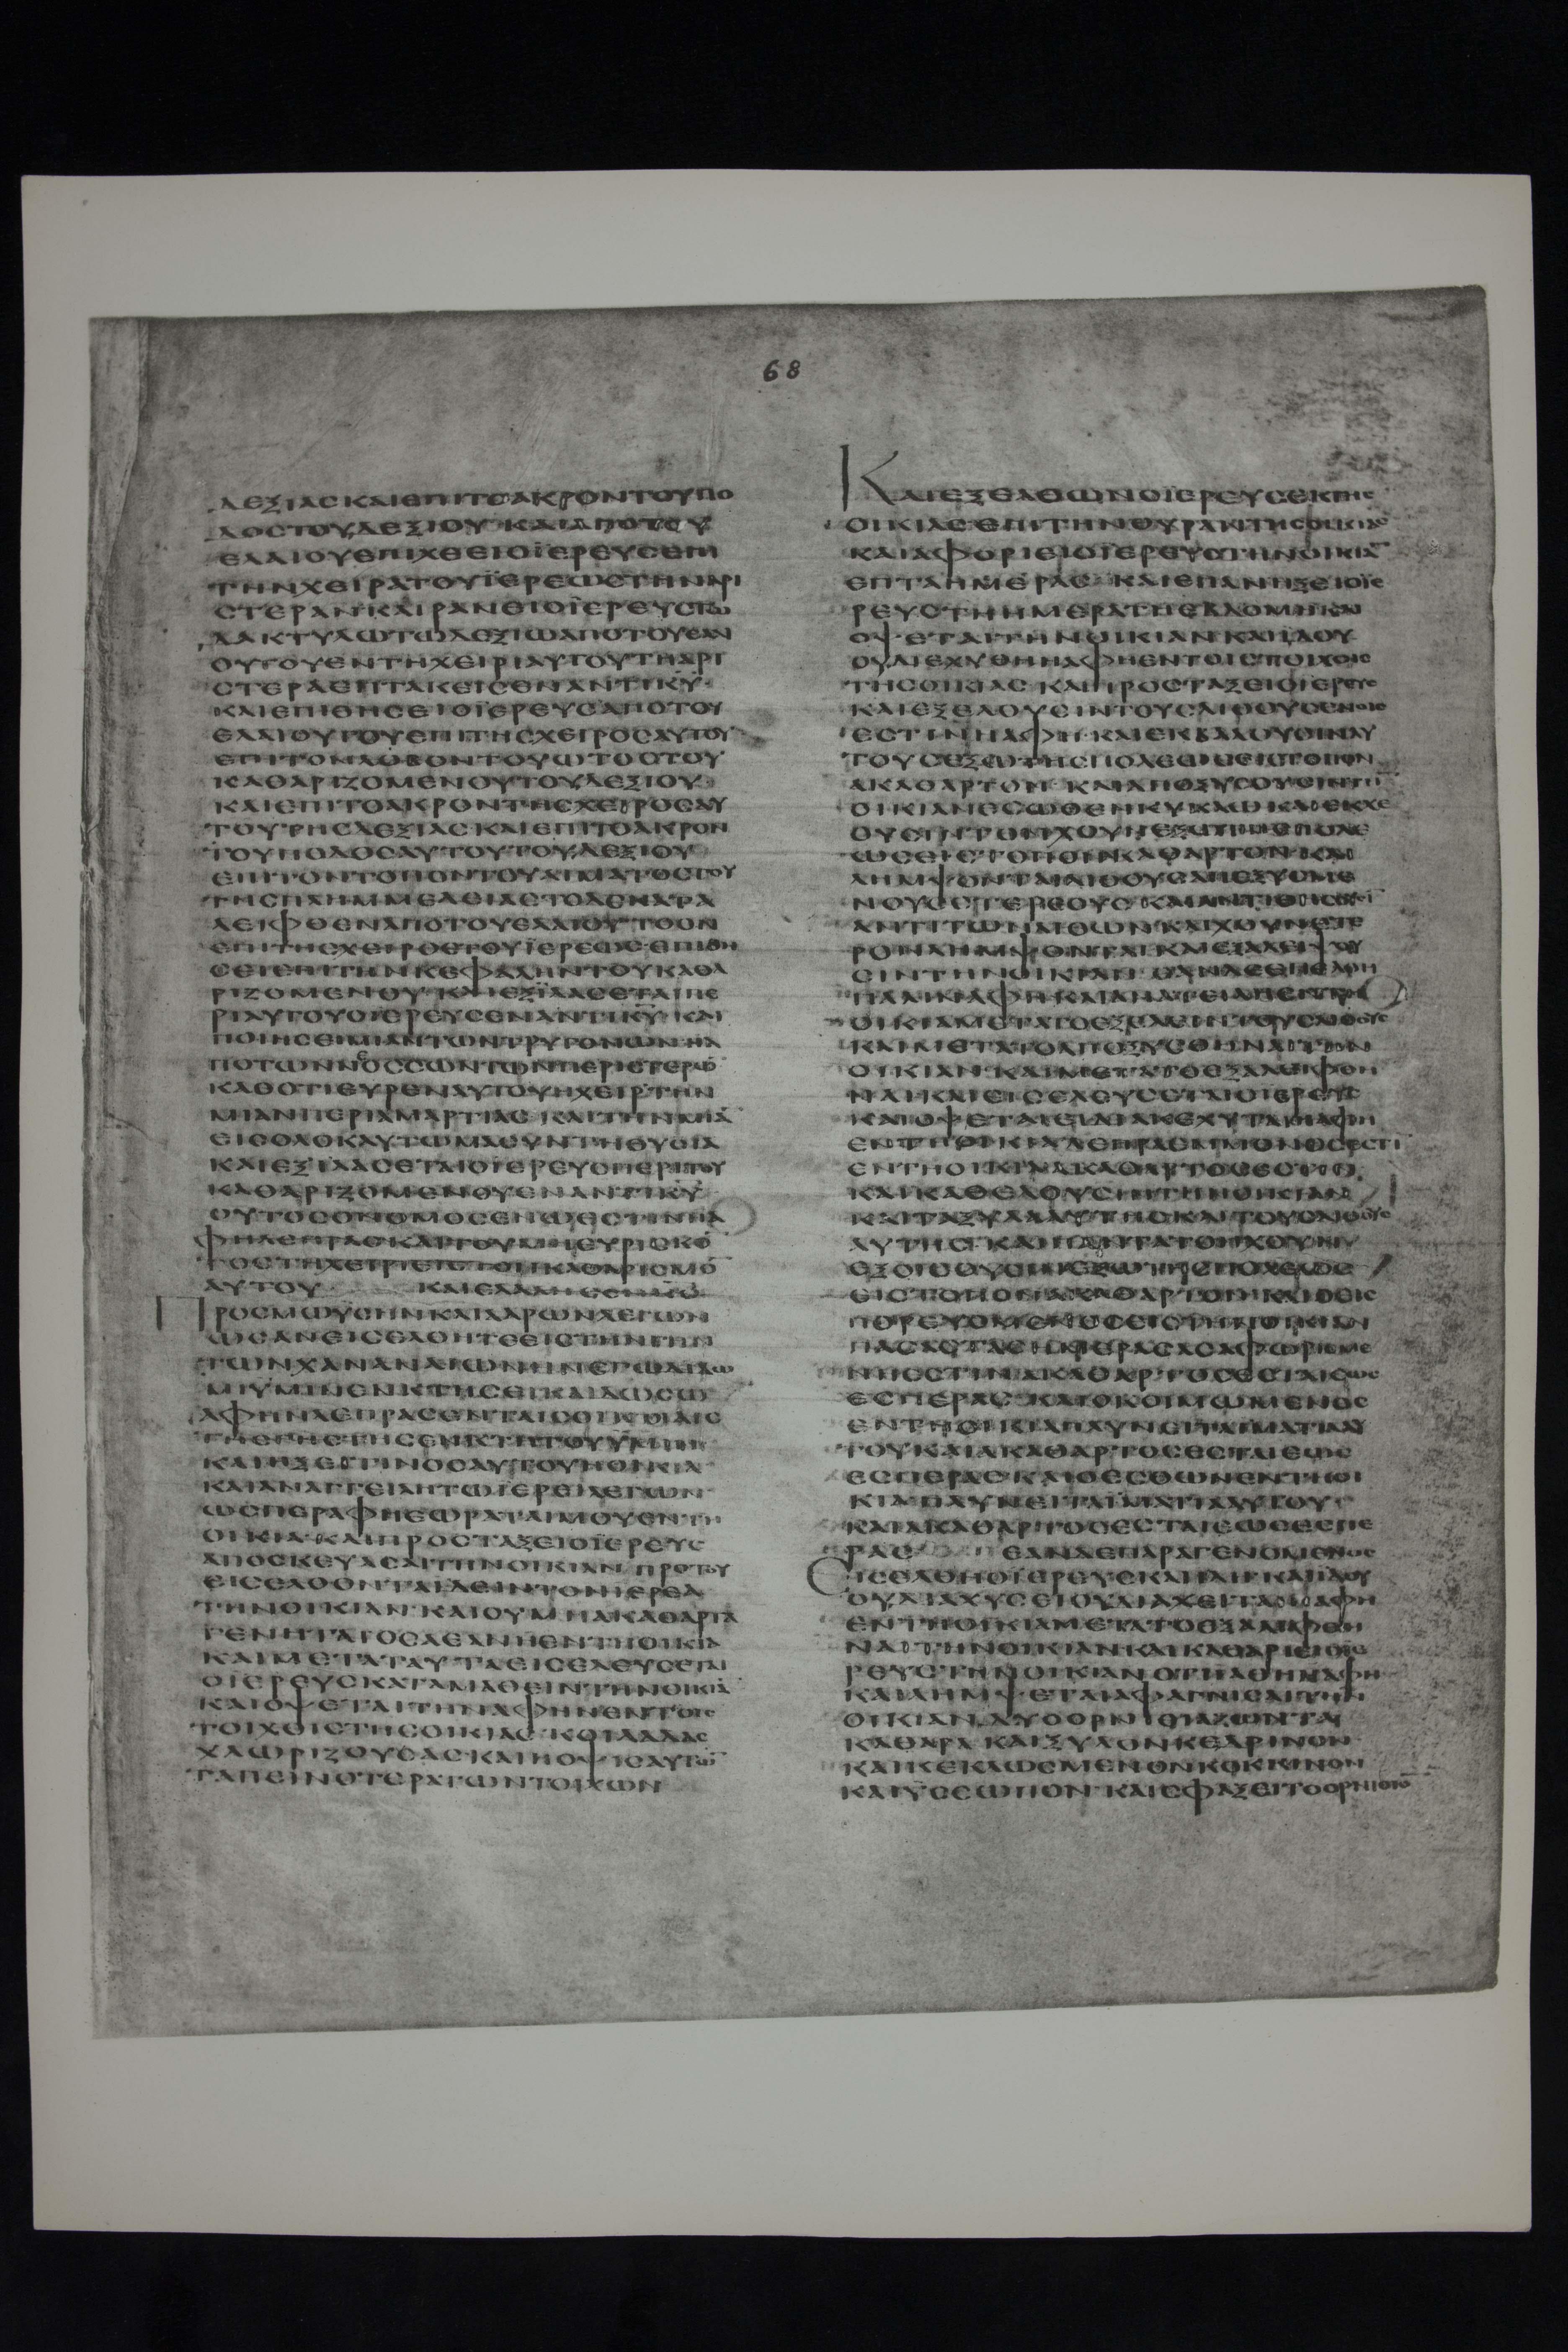 68
ΔΕΞΙΑСΚΑΙΕΠΙΤΟΑΚΡΟΝΤΟΥΠΟ
ΔΟСΤΟΥΔΕΞΙΟΥΚΑΙΑΠΟΤΟΥ
ΕΛΑΙΟΥΕΠΙΧΕΕΙΟΪΕΡΕΥСΕΠΙ
ΤΗΝΧΕΙΡΑΤΟΥΪΕΡΕΩСΤΗΝΑΡΙ
СΤΕΡΑΝΚΑΙΡΑΝΕΙΟΪΕΡΕΥСΤΩ
ΔΑΚΤΥΛΩΤΩΔΕΞΙΩΑΠΟΤΟΥΕΛΑΙ
ΟΥΤΟΥΕΝΤΗΧΕΙΡΙΑΥΤΟΥΤΗΑΡΙ
СΤΕΡΑΕΠΤΑΚΕΙСΕΝΑΝΤΙΚΥ
ΚΑΙΕΠΙΘΗСΕΙΟΪΕΡΕΥСΑΠΟΤΟΥ
ΕΛΑΙΟΥΤΟΥΕΠΙΤΗСΧΕΙΡΟСΑΥΤΟΥ
ΕΠΙΤΟΝΛΟΒΟΝΤΟΥΩΤΟСΤΟΥ
ΚΑΘΑΡΙΖΟΜΕΝΟΥΤΟΥΔΕΞΙΟΥ
ΚΑΙΕΠΙΤΟΑΚΡΟΝΤΗСΧΕΙΡΟСΑΥ
ΤΟΥΤΗСΔΕΞΙΑСΚΑΙΕΠΙΤΟΑΚΡΟΝ
ΤΟΥΠΟΔΟСΑΥΤΟΥΤΟΥΔΕΞΙΟΥ
ΕΠΙΤΟΝΤΟΠΟΝΤΟΥΑΙΜΑΤΟСΤΟΥ
ΤΗСΠΛΗΜΜΕΛΕΙΑСΤΟΔΕΚΑΤΑ
ΛΕΙΦΘΕΝΑΠΟΤΟΥΕΛΑΙΟΥΤΟΟΝ
ΕΠΙΤΗСΧΕΙΡΟСΤΟΥΪΕΡΕΩСΕΠΙΘΗ
СΕΙΕΠΙΤΗΝΚΕΦΑΛΗΝΤΟΥΚΑΘΑ
ΡΙΖΟΜΕΝΟΥΚΑΙΕΞΪΛΑСΕΤΑΙΠΕ
ΡΙΑΥΤΟΥΟΪΕΡΕΥСΕΝΑΝΤΙΚΥΚΑΙ
ΠΟΙΗСΕΙΜΙΑΝΤΩΝΤΡΥΓΟΝΩΝΗΑ
ΠΟΤΩΝΝΕΟССΩΝΤΩΝΠΕΡΙСΤΕΡΩ
ΚΑΘΟΤΙΕΥΡΕΝΑΥΤΟΥΗΧΕΙΡΤΗΝ
ΜΙΑΝΠΕΡΙΑΜΑΡΤΙΑСΚΑΙΤΗΝΜΙΑ
ΕΙСΟΛΟΚΑΥΤΩΜΑСΥΝΤΗΘΥСΙΑ
ΚΑΙΕΞΪΛΑСΕΤΑΙΟΪΕΡΕΥСΠΕΡΙΤΟΥ
ΚΑΘΑΡΙΖΟΜΕΝΟΥΕΝΑΝΤΙΚΥ
ΟΥΤΟСΟΝΟΜΟСΕΝΩΕСΤΙΝΗΑ
ΦΗΛΕΠΡΑСΚΑΙΤΟΥΜΗΕΥΡΙСΚΟ
ΤΟСΤΗΧΕΙΡΙΕΙСΤΟΝΚΑΘΑΡΙСΜΟ
ΑΥΤΟΥ ΚΑΙΕΛΑΛΗСΕΝΚС
ΠΡΟСΜΩΥСΗΝΚΑΙΑΑΡΩΝΛΕΓΩΝ
ΩСΑΝΕΙСΕΛΘΗΤΕΕΙСΤΗΝΓΗΝ
ΤΩΝΧΑΝΑΝΑΙΩΝΗΝΕΓΩΔΙΔΩ
ΜΙΥΜΙΝΕΝΚΤΗСΕΙΚΑΙΔΩСΩ
ΑΦΗΝΛΕΠΡΑСΕΝΤΑΙСΟΙΚΙΑΙС
ΤΗСΓΗСΤΗСΕΝΚΤΗΤΟΥΥΜΙΝ
ΚΑΙΗΞΕΙΤΙΝΟСΑΥΤΟΥΗΟΙΚΙΑ
ΚΑΙΑΝΑΓΓΕΛΕΙΤΩΪΕΡΕΙΛΕΓΩΝ
ΩСΠΕΡΑΦΗΕΩΡΑΤΑΙΜΟΥΕΝΤΗ
ΟΙΚΙΑΚΑΙΠΡΟСΤΑΞΕΙΟΪΕΡΕΥС
ΑΠΟСΚΕΥΑСΑΙΤΗΝΟΙΚΙΑΝΠΡΟΤΟΥ
ΕΙСΕΛΘΟΝΤΑΪΔΕΙΝΤΟΝΪΕΡΕΑ
ΤΗΝΟΙΚΙΑΝΚΑΙΟΥΜΗΑΚΑΘΑΡΤΑ
ΓΕΝΗΤΑΙΟСΑΕΑΝΗΕΝΤΗΟΙΚΙΑ
ΚΑΙΜΕΤΑΤΑΥΤΑΕΙСΕΛΕΥСΕΤΑΙ
ΟΪΕΡΕΥСΚΑΤΑΜΑΘΕΙΝΤΗΝΟΙΚΙΑ
ΚΑΙΟΨΕΤΑΙΤΗΝΑΦΗΝΕΝΤΟΙС
ΤΟΙΧΟΙСΤΗСΟΙΚΙΑСΚΟΙΛΑΔΑС
ΧΛΩΡΙΖΟΥСΑСΚΑΙΗΟΨΙСΑΥΤΩ
ΤΑΠΕΙΝΟΤΕΡΑΤΩΝΤΟΙΧΩΝ
ΚΑΙΕΞΕΛΘΩΝΟΪΕΡΕΥСΕΚΤΗС
ΟΙΚΙΑСΕΠΙΤΗΝΘΥΡΑΝΤΗСΟΙΚΙΑС
ΚΑΙΑΦΟΡΙΕΙΟΪΕΡΕΥСΤΗΝΟΙΚΙΑ
ΕΠΤΑΗΜΕΡΑСΚΑΙΕΠΑΝΗΞΕΙΟΪΕ
ΡΕΥСΤΗΗΜΕΡΑΤΗΕΒΔΟΜΗΚΑΙ
ΟΨΕΤΑΙΤΗΝΟΙΚΙΑΝΚΑΙΪΔΟΥ
ΟΥΔΙΕΧΥΘΗΗΑΦΗΕΝΤΟΙСΤΟΙΧΟΙС
ΤΗСΟΙΚΙΑСΚΑΙΠΡΟСΤΑΞΕΙΟΪΕΡΕΥС
ΚΑΙΕΞΕΛΟΥСΙΝΤΟΥСΛΙΘΟΥСΕΝΟΙС
ΕСΤΙΝΗΑΦΗΚΑΙΕΚΒΑΛΟΥСΙΝΑΥ
ΤΟΥСΕΞΩΤΗСΠΟΛΕΩСΕΙСΤΟΠΟΝ
ΑΚΑΘΑΡΤΟΝΚΑΙΑΠΟΞΥСΟΥСΙΝΤΗ
ΟΙΚΙΑΝΕСΩΘΕΝΚΥΚΛΩΚΑΙΕΚΧΕ
ΟΥСΙΝΤΟΝΧΟΥΝΕΞΩΤΗСΠΟΛΕ
ΩСΕΙСΤΟΠΟΝΑΚΑΘΑΡΤΟΝΚΑΙ
ΛΗΜΨΟΝΤΑΙΛΙΘΟΥСΑΠΕΞΥСΜΕ
ΝΟΥСΕΤΕΡΟΥСΚΑΙΑΝΤΙΘΗСΟΥСΙ
ΑΝΤΙΤΩΝΛΙΘΩΝΚΑΙΧΟΥΝΕΤΕ
ΡΟΝΛΗΜΨΟΝΤΑΙΚΑΙΕΞΑΛΕΙΨΟΥ
СΙΝΤΗΝΟΙΚΙΑΝΕΑΝΔΕΕΠΕΛΘΗ
ΠΑΛΙΝΑΦΗΚΑΙΑΝΑΤΕΙΛΗΕΝΤΗ
ΟΙΚΙΑΜΕΤΑΤΟΕΞΕΛΕΙΝΤΟΥСΛΙΘΟΥС
ΚΑΙΜΕΤΑΤΟΑΠΟΞΥСΘΗΝΑΙΤΗΝ
ΟΙΚΙΑΝΚΑΙΜΕΤΑΤΟΕΞΑΛΕΙΦΘΗ
ΝΑΙΚΑΙΕΙСΕΛΕΥСΕΤΑΙΟΪΕΡΕΥС
ΚΑΙΟΨΕΤΑΙΕΙΔΙΑΚΕΧΥΤΑΙΗΑΦΗ
ΕΝΤΗΟΙΚΙΑΛΕΠΡΑΕΜΜΟΝΟСΕСΤΙ
ΕΝΤΗΟΙΚΙΑΑΚΑΘΑΡΤΟСΕСΤΙΝ
ΚΑΙΚΑΘΕΛΟΥСΙΝΤΗΝΟΙΚΙΑΝ
ΚΑΙΤΑΞΥΛΑΑΥΤΗСΚΑΙΤΟΥСΛΙΘΟΥС
ΑΥΤΗСΚΑΙΠΑΝΤΑΤΟΝΧΟΥΝ
ΕΞΟΙСΟΥСΙΝΕΞΩΤΗСΠΟΛΕΩС
ΕΙСΤΟΠΟΝΑΚΑΘΑΡΤΟΝΚΑΙΟΕΙС
ΠΟΡΕΥΟΜΕΝΟСΕΙСΤΗΝΟΙΚΙΑΝ
ΠΑСΑСΤΑСΗΜΕΡΑСΑСΑΦΩΡΙСΜΕ
ΝΗΕСΤΙΝΑΚΑΘΑΡΤΟСΕСΤΑΙΕΩС
ΕСΠΕΡΑСΚΑΙΟΚΟΙΜΩΜΕΝΟС
ΕΝΤΗΟΙΚΙΑΠΛΥΝΕΙΤΑΪΜΑΤΙΑΑΥ
ΤΟΥΚΑΙΑΚΑΘΑΡΤΟСΕСΤΑΙΕΩС
ΕСΠΕΡΑСΚΑΙΟΕСΘΩΝΕΝΤΗΟΙ
ΚΙΑΠΛΥΝΕΙΤΑΪΜΑΤΙΑΑΥΤΟΥ
ΚΑΙΑΚΑΘΑΡΤΟСΕСΤΑΙΕΩСΕСΠΕ
ΡΑС ΕΑΝΔΕΠΑΡΑΓΕΝΟΜΕΝΟС
ΕΙСΕΛΘΗΟΪΕΡΕΥСΚΑΙΪΔΗΚΑΙΪΔΟΥ
ΟΥΔΙΑΧΥСΕΙΟΥΔΙΑΧΕΙΤΑΙΗΑΦΗ
ΕΝΤΗΟΙΚΙΑΜΕΤΑΤΟΕΞΑΛΙΦΘΗ
ΝΑΙΤΗΝΟΙΚΙΑΝΚΑΙΚΑΘΑΡΙΕΙΟΪΕ
ΡΕΥСΤΗΝΟΙΚΙΑΝΟΤΙΙΑΘΗΗΑΦΗ
ΚΑΙΛΗΜΨΕΤΑΙΑΦΑΓΝΙСΑΙΤΗΝ
ΟΙΚΙΑΝΔΥΟΟΡΝΙΘΙΑΖΩΝΤΑ
ΚΑΘΑΡΑΚΑΙΞΥΛΟΝΚΕΔΡΙΝΟΝ
ΚΑΙΚΕΚΛΩСΜΕΝΟΝΚΟΚΚΙΝΟΝ
ΚΑΙΥССΩΠΟΝΚΑΙСΦΑΞΕΙΤΟΟΡΝΙΘΙΟ